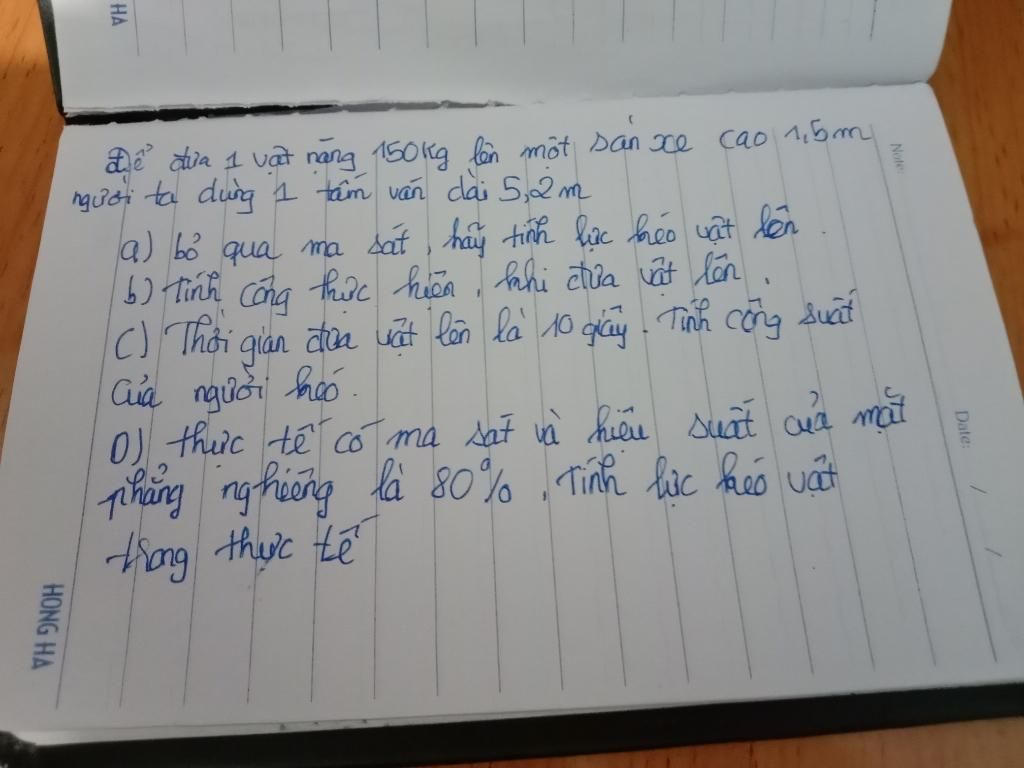 HA
Để đưa 1 vật nặng 150kg lên một sán xe cao 1,5m
người ta dùng 1 tấm ván dài 5,2m
a) bỏ qua ma sát, hãy tính lực kéo vật lên.
b) Tính công thực hiện, khi đưa vật lên.
C) Thời gian đưa vật lên là 10 giây. Tính công suất
của người kéo.
D) thực tế có ma sát và hiệu suất của mặt
phẳng nghiêng là 80%, Tính lực kéo vật
trong thực tế
Note:
Date: / /
HONG HA